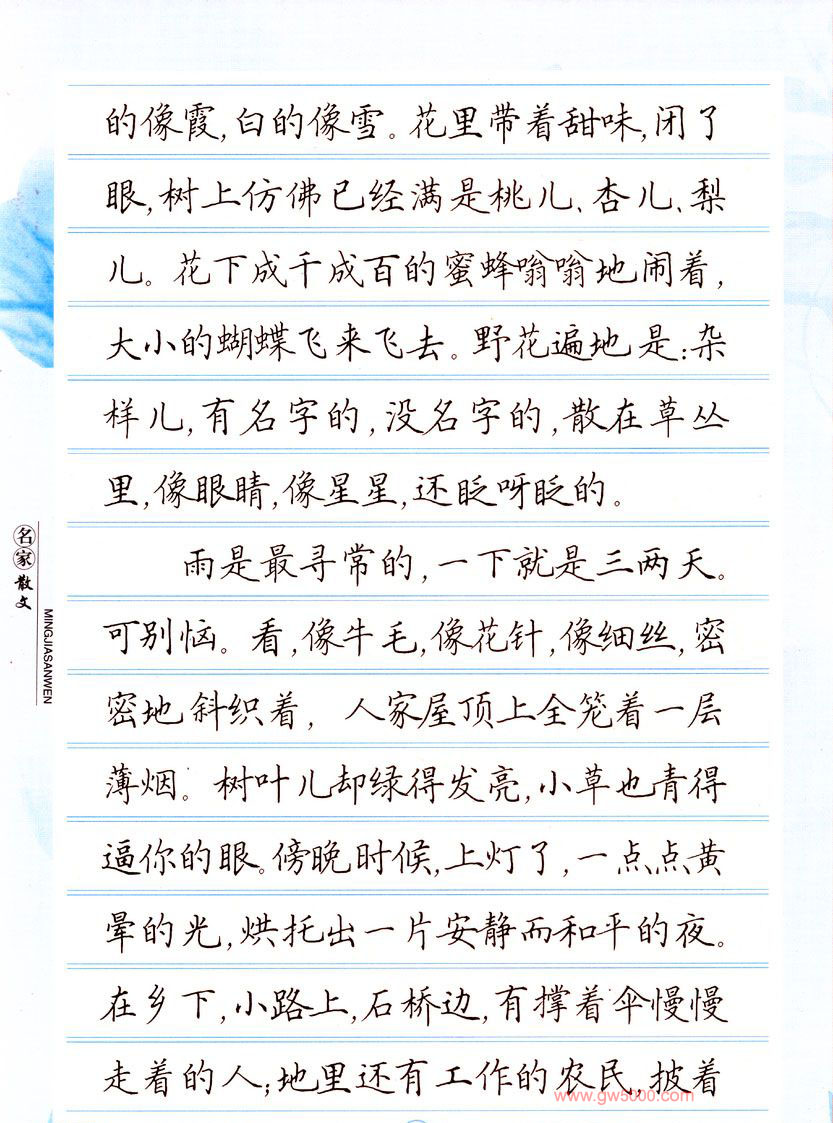 的像霞,白的像雪。花里带着甜味,闭了
眼,树上仿佛已经满是桃儿、杏儿、梨
儿。花下成千成百的蜜蜂嗡嗡地闹着,
大小的蝴蝶飞来飞去。野花遍地是:杂
样儿,有名字的,没名字的,散在草丛
里,像眼睛,像星星,还眨呀眨的。
雨是最寻常的,一下就是三两天。
可别恼。看,像牛毛,像花针,像细丝,密
密地斜织着,人家屋顶上全笼着一层
薄烟。树叶儿却绿得发亮,小草也青得
逼你的眼。傍晚时候,上灯了,一点点黄
晕的光,烘托出一片安静而和平的夜。
在乡下,小路上,石桥边,有撑着伞慢慢
走着的人;地里还有工作的农民,披着
名家散文
MINGJIASANWEN
www.gw5000.com